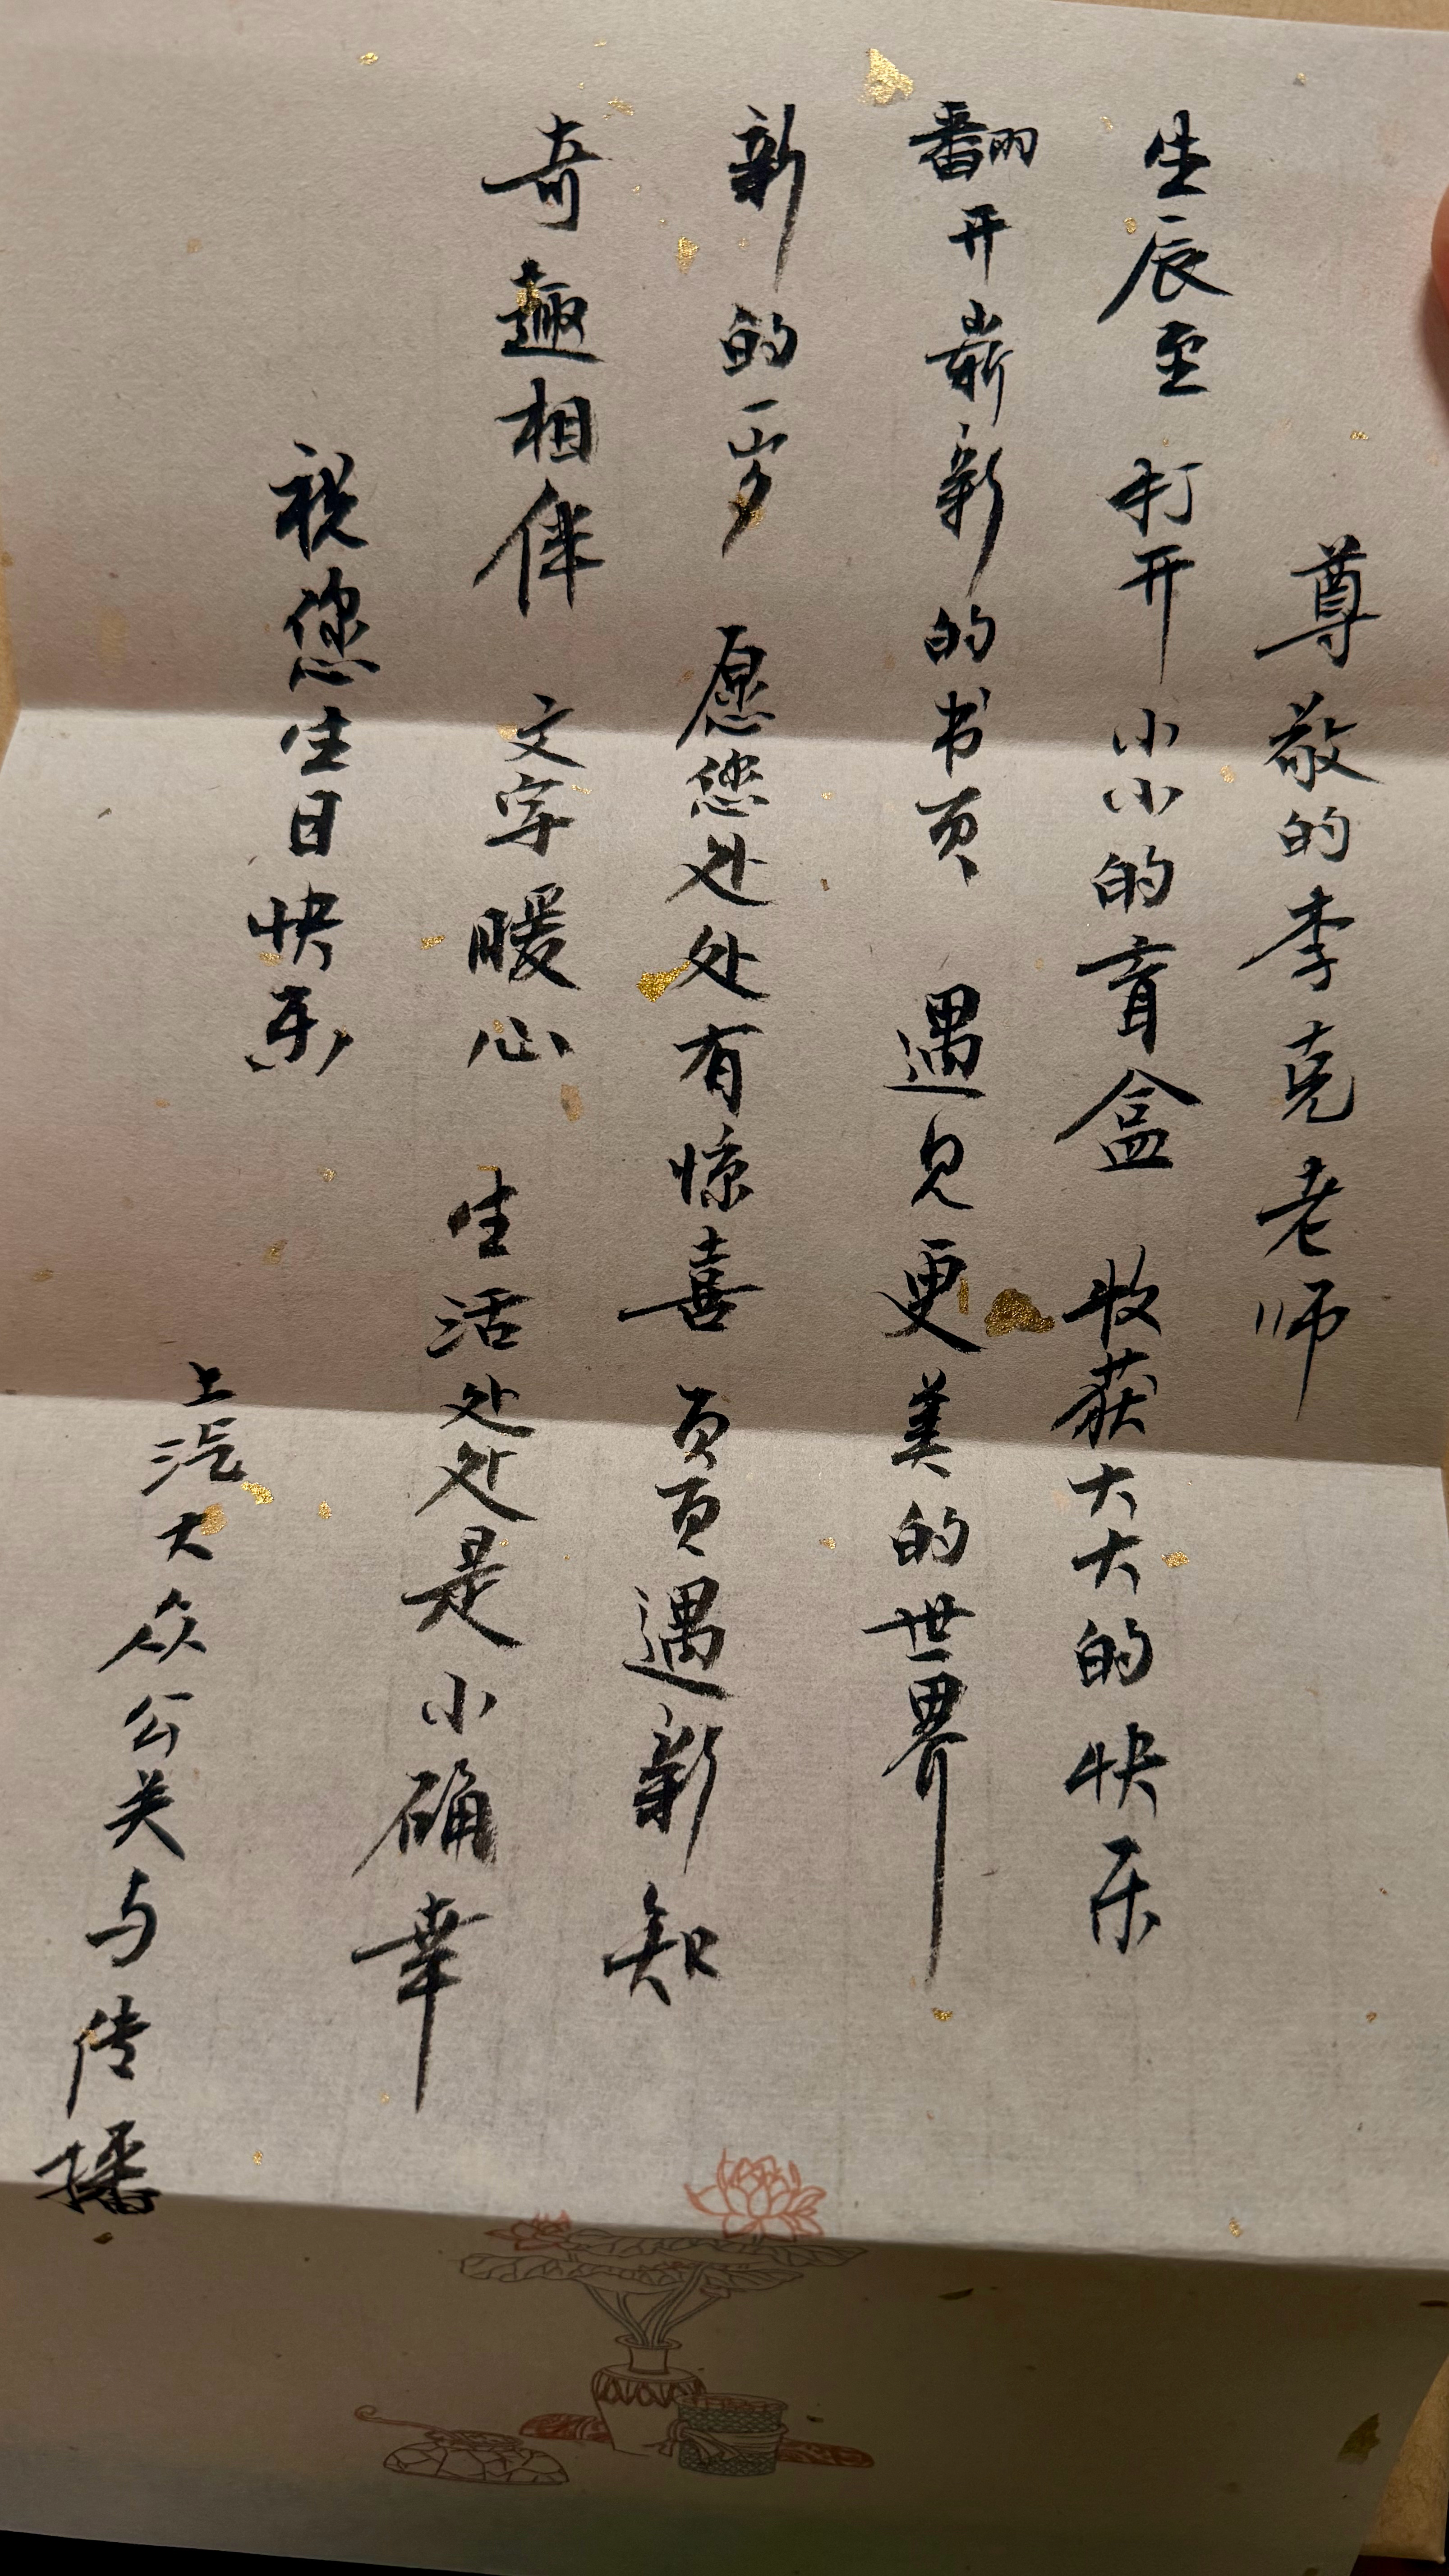 尊敬的李克老师
生辰至 打开小小的盲盒 收获大大的快乐
翻开崭新的书页 遇见更美的世界
新的一岁 愿您处处有惊喜 页页遇新知
奇趣相伴 文字暖心 生活处处是小确幸
祝您生日快乐
上汽大众公关与传播